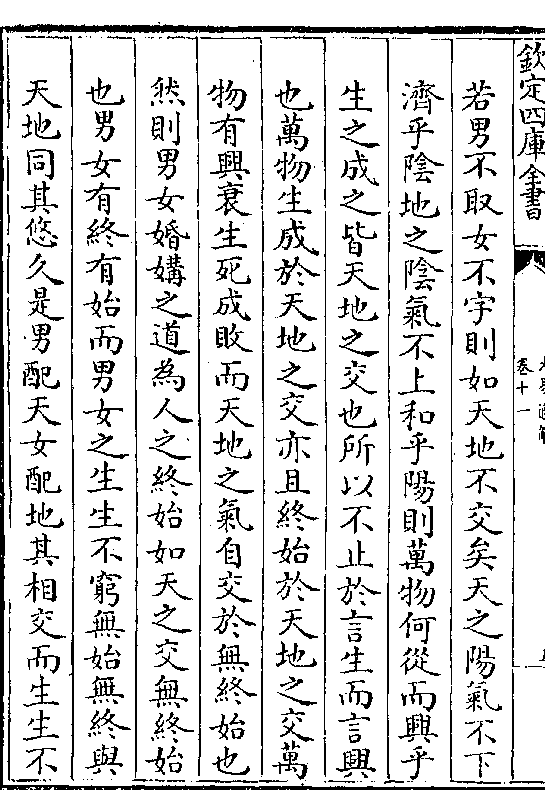 欽定四庫全書
卷十一
若男不取女不字則如天地不交矣天之陽氣不下
濟乎陰地之陰氣不上和乎陽則萬物何從而興乎
生之成之皆天地之交也所以不止於言生而言興
也萬物生成於天地之交亦且終始於天地之交萬
物有興衰生死成敗而天地之氣自交於無終始也
然則男女婚媾之道為人之終始如天之交無終始
也男女有終有始而男女之生生不窮無始無終與
天地同其悠久是男配天女配地其相交而生生不